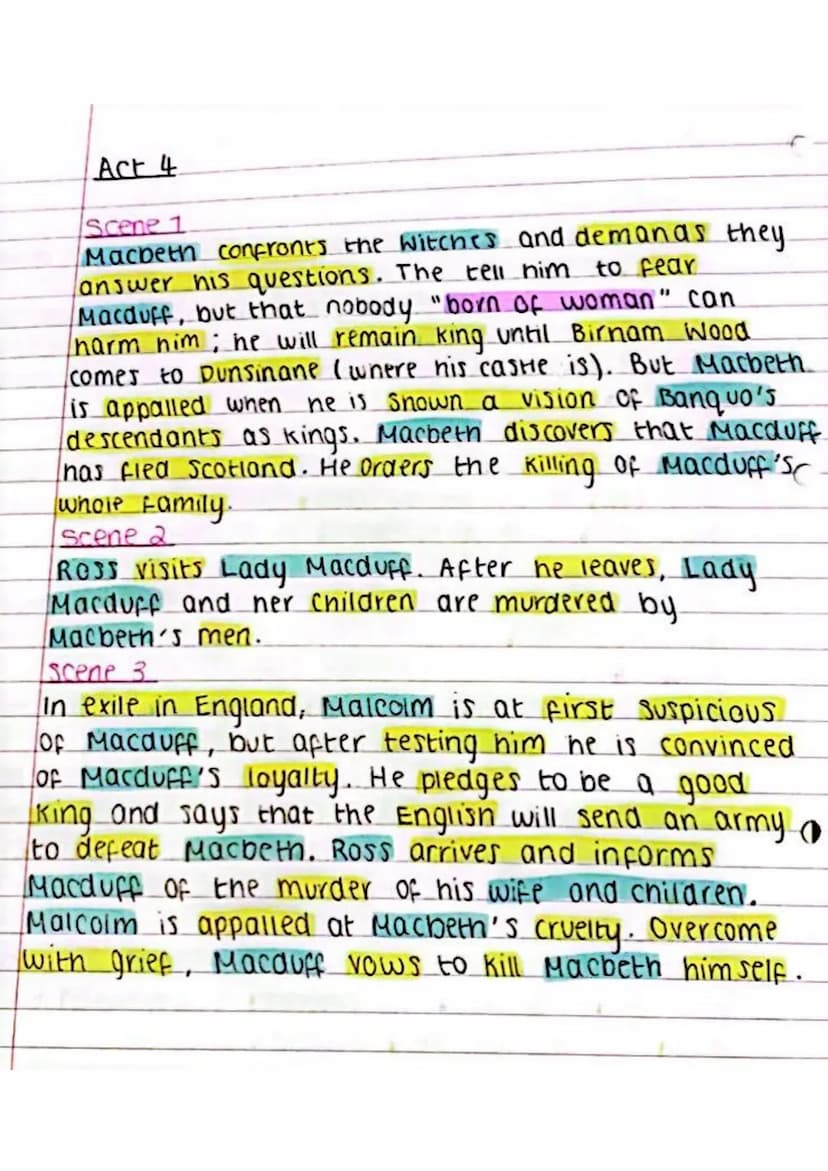 Act 4
Scene 1
Macbeth confronts the witches and demands they
answer his questions. The tell him to fear
Macduff, but that nobody "born of woman" can
harm him; he will remain king until Birnam Wood
comes to Dunsinane (where his castle is). But Macbeth
is appalled when he is shown a vision of Banquo's
descendants as kings. Macbeth discovers that Macduff
has fled Scotland. He orders the killing of Macduff's
whole family.
Scene 2
Ross visits Lady Macduff. After he leaves, Lady
Macduff and her children are murdered by
Macbeth's men.
Scene 3
In exile in England, Malcolm is at first suspicious
of Macduff, but after testing him he is convinced
of Macduff's loyalty. He pledges to be a good
king and says that the English will send an army
to defeat Macbeth. Ross arrives and informs
Macduff of the murder of his wife and children.
Malcolm is appalled at Macbeth's cruelty. Overcome
with grief, Macduff vows to kill Macbeth himself.